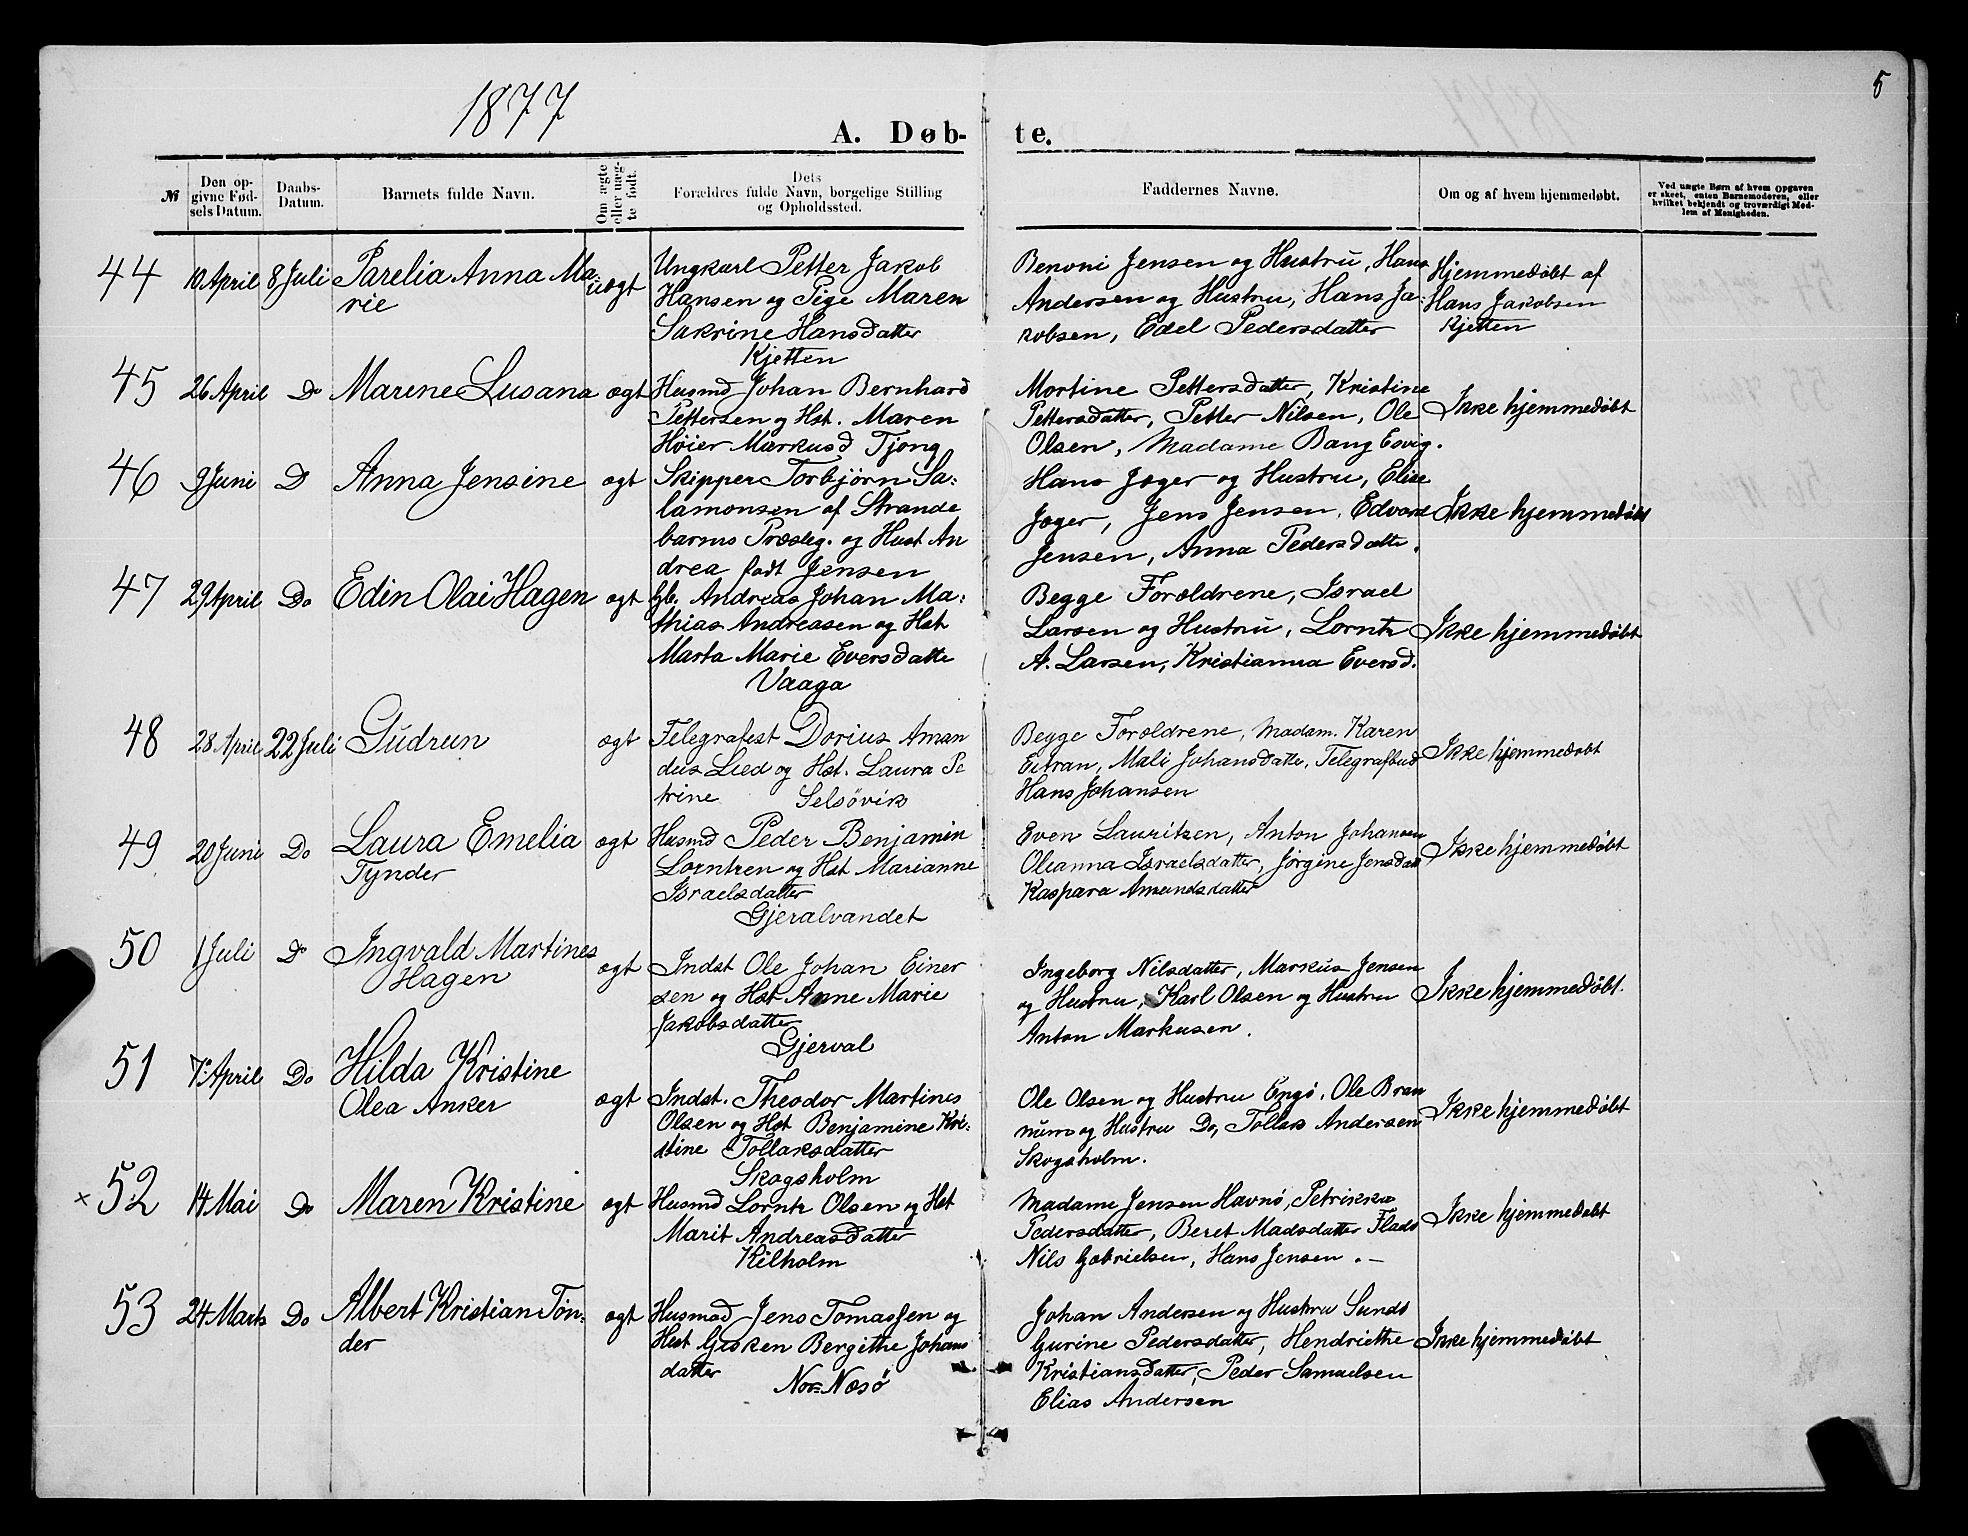 1877
5
A. Døb- te.
№
Den op-
givne Fød-
sels Datum.
Daabs-
Datum.
Barnets fulde Navn.
Om ægte
eller uæg-
te født.
Dets
Forældres fulde Navn, borgelige Stilling
og Opholdssted.
Faddernes Navne.
Om og af hvem hjemmedøbt.
Ved uægte Børn af hvem Opgaven
er skeet, enten Barnemoderen, eller
hvilket bekjendt og troværdigt Med-
lem af Menigheden.
44 10 April 8 Juli Parelia Anna Ma-
rie
uægt
Ungkarl Petter Jakob
Hansen og Pige Maren
Sakrine Hansdatter
Kjetten
Benoni Jensen og Hustru, Hans
Andersen og Hustru, Hans Ja-
kobsen, Edel Pedersdatter
Hjemmedøbt af
Hans Jakobsen
Kjetten
45 26 April Do Marene Lusana ægt
Husmd Johan Bernhard
Pettersen og Hst. Maren
Høier Markusd Tjong
Mortine Pettersdatter, Kristine
Pettersdatter, Petter Nilsen, Ole
Olsen, Madame Bang Esvig.
Ikke hjemmedøbt
46 9 Juni D Anna Jensine ægt
Skipper Torbjørn Sa-
lamonsen af Strande
barms Præsteg. og Hust An
drea født Jensen
Hans Jæger og Hustru, Elise
Jæger, Jens Jensen, Edvard
Jensen, Anna Pedersdatte.
Ikke hjemmedøbt
47 29 April Do Edin Olai Hagen ægt
Gb. Andreas Johan Ma-
thias Andreasen og Hst
Marta Marie Eversdatte
Vaaga
Begge Forældrene, Israel
Larsen og Hustru, Lornts
A. Larsen, Kristianna Eversd.
Ikke hjemmedøbt
48 28 April 22 Juli Gudrun ægt
Telegrafest Dorius Aman
dus Lied og Hst. Laura Pe
trine Selsøvik
Begge Forældrene, Madam. Karen
Eitran, Mali Johansdatte, Telegrafbud
Hans Johansen
Ikke hjemmedøbt
49 20 Juni Do Laura Emelia
Tynder
ægt
Husmd Peder Benjamin
Lorntzen og Hst Marianne
Israelsdatter
Gjeralvandet
Even Lauritsen, Anton Johansen
Oleanna Israelsdatter, Jørgine Jensdatt
Kaspara Amundsdatter
Ikke hjemmedøbt
50 1 Juli Do Ingvald Martines
Hagen
ægt
Indst Ole Johan Einer
sen og Hst Anne Marie
Jakobsdatter
Gjerval
Ingeborg Nilsdatter, Markus Jensen
og Hustru, Karl Olsen og Hustru
Anton Markusen.
Ikke hjemmedøbt.
51 7. April Do Hilda Kristine
Olea Anker
ægt
Indst. Theodor Martines
Olsen og Hst Benjamine Kri-
stine Tollaksdatter
Skogsholm
Ole Olsen og Hustru Engø, Ole Bran
num og Hustru Do, Tollak Andersen
Skogsholm.
Ikke hjemmedøbt
× 52 14 Mai Do Maren Kristine ægt
Husmd Lornts Olsen og Hst
Marit Andreasdatter
Kilholm
Madame Jensen Havnø, Petrikka
Pedersdatter, Beret Madsdatter Flatø
Nils Gabrielsen, Hans Jensen. —
Ikke hjemmedøbt
53 24 Marts Do Albert Kristian Tøn-
der
ægt
Husmad Jens Tomassen og
Hst Gisken Bergithe Johans
datter
Nor-Næsø
Johan Andersen og Hustru Sundø
Gurine Pedersdatter, Hendriethe
Kristiansdatter, Peder Samuelsen
Elias Andersen
Ikke hjemmedøbt